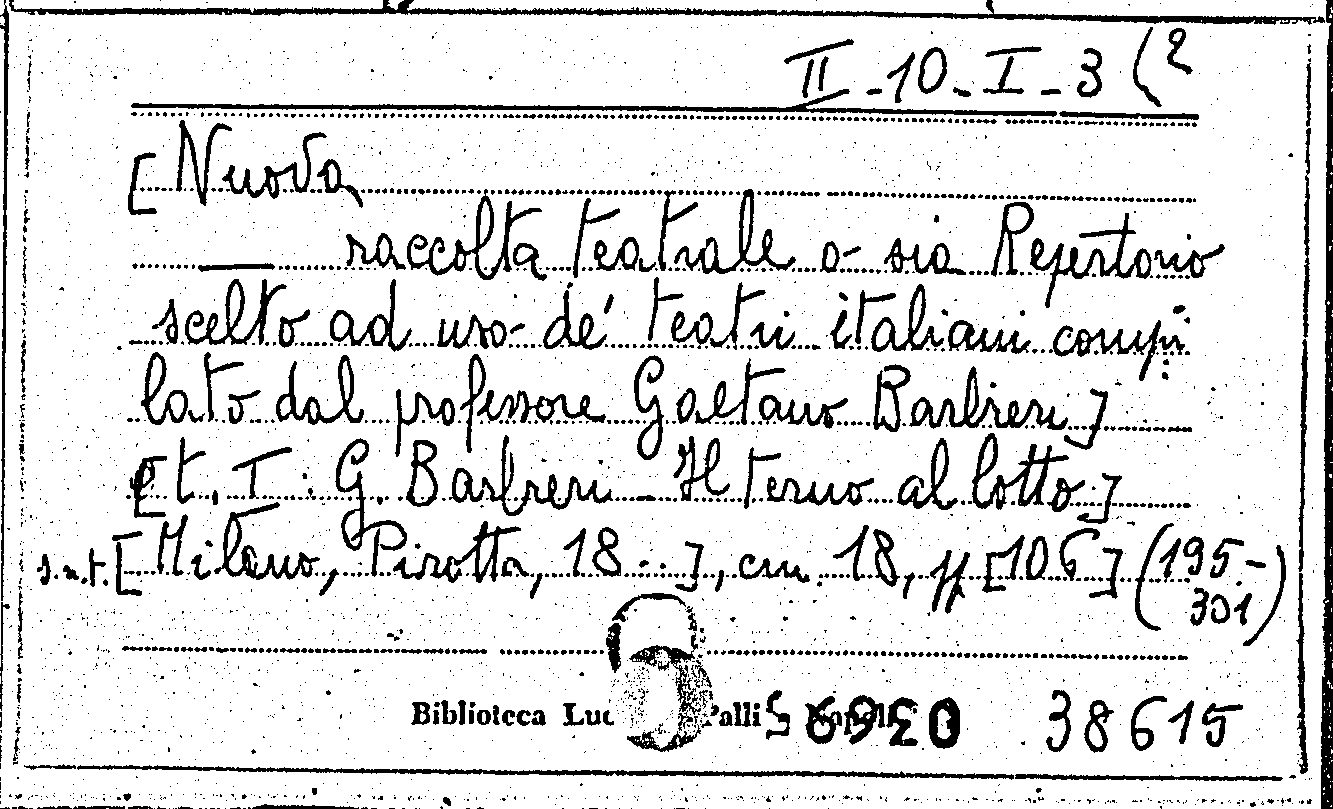 II-10-I-3(2
[Nuova
raccolta teatrale o sia Repertorio
scelto ad uso de' teatri italiani compi
lato dal professore Gaetano Barbieri]
[t. I: G. Barbieri - Il terno al lotto]
s.n.t. [Milano, Pirotta, 18..], cm. 18, pp [106] (195-
301)
Biblioteca Luc Palli
38615